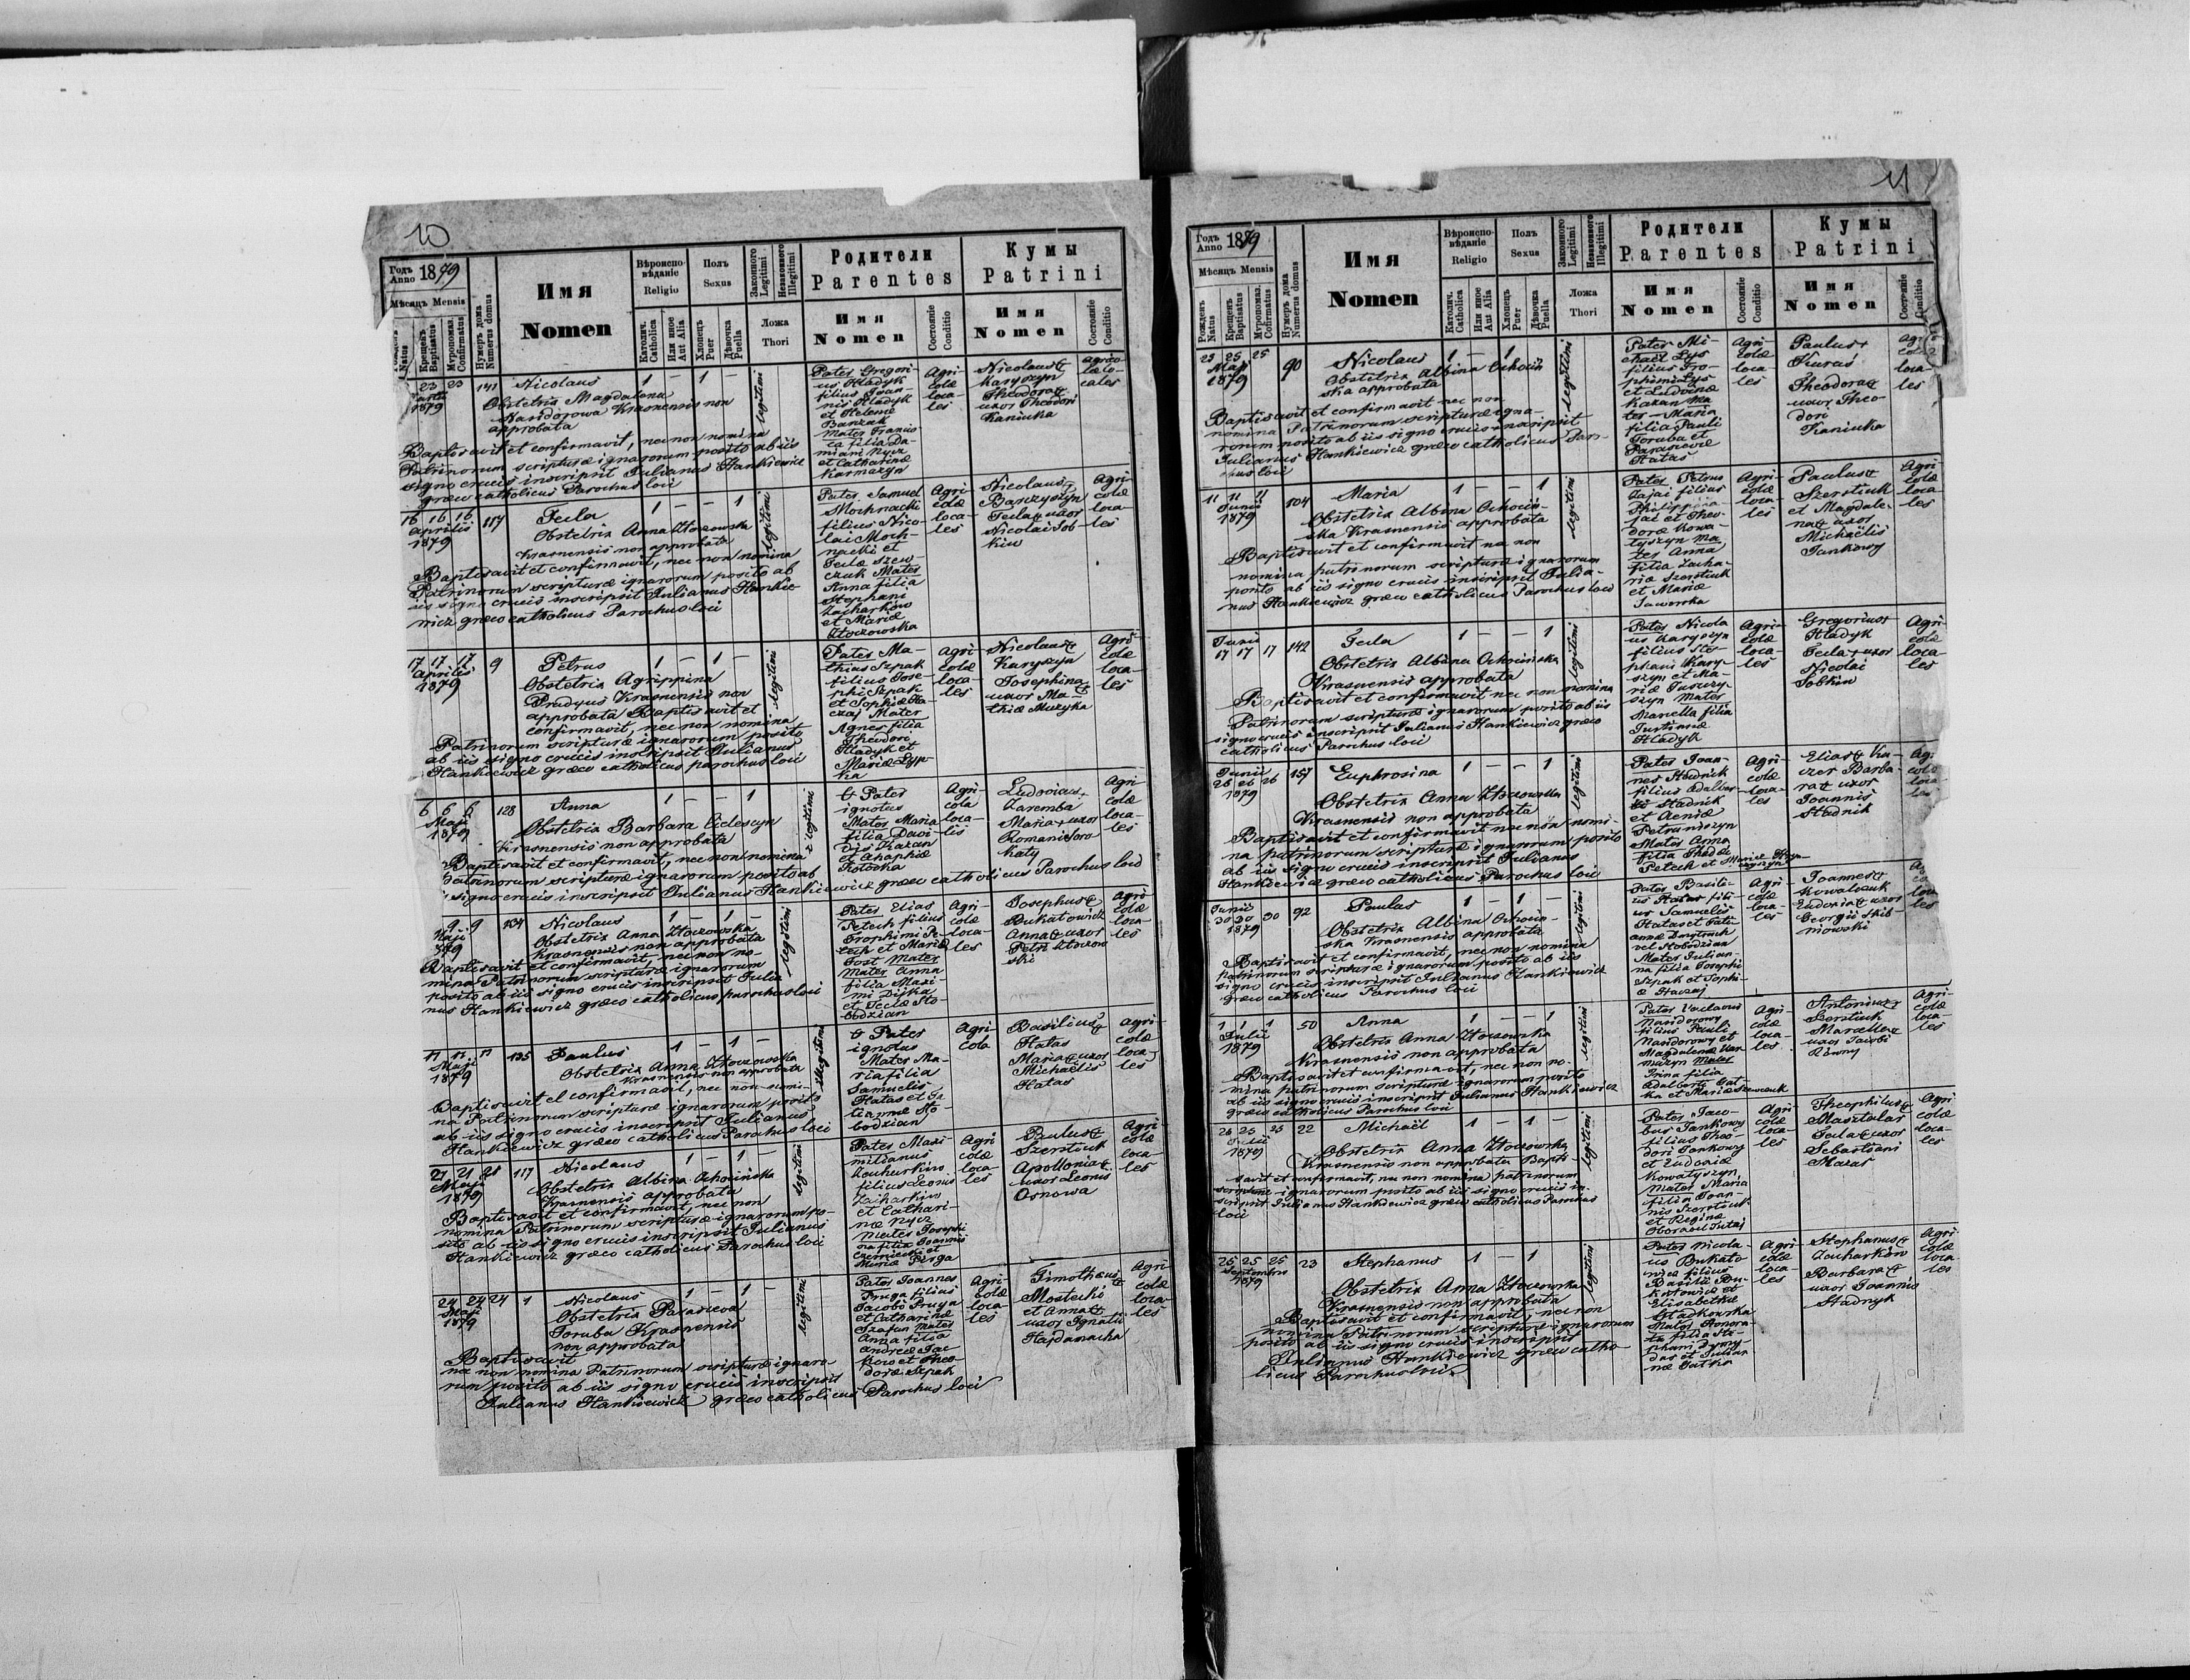 10
Годъ Anno 1879
Мѣсяцъ Mensis
Natus
Крещенъ Baptisatus
Муропомаз. Confirmatus
Нумеръ дома Numerus domus
Имя Nomen
Вѣроисповѣданіе Religio
Католич. Catholica
Или иное Aut Alia
Полъ Sexus
Хлопецъ Puer
Дѣвочка Puella
Законного Legitimi
Незаконного Illegitimi
Ложа Thori
Родители Parentes
Имя Nomen
Состояніе Conditio
Кумы Patrini
Имя Nomen
Состояніе Conditio
23 23 141 Nicolaus 1 – 1 – legitimi
1879
Obstetrix Magdalena
Nandorowa Krasnensis non
approbata
Baptisavit et confirmavit, nec non nomina
Patrinorum scripturæ ignarorum posito ab iis
signo crucis inscripsit Julianus Hankiewicz
græco catholicus Parochus loci
Pater Gregori-
us Hladyk
filius Joan-
nis Hladyk
et Helenæ
Mater Francis-
ca filia Da-
miani Nycz
et Catharinæ
Karmazyn
Agri-
colæ
loca-
les
Nicolaus +
Karyszyn
Theodora +
uxor Theodori
Kaniuka
16 16 16 117 Tecla 1 – – 1 legitimi
Aprilis
1879
Obstetrix Anna Złoczowska
Krasnensis non approbata
Baptisavit et confirmavit, nec non nomina
Patrinorum scripturæ ignarorum posito ab
iis signo crucis inscripsit Julianus Hankie-
wicz græco catholicus Parochus loci
Pater Samuel
Mochnacki
filius Nico-
lai Moch-
nacki et
Teclæ Szew-
czuk Mater
Anna filia
Stephani
Zacharków
et Mariæ
Złoczowska
Agri-
colæ
loca-
les
Nicolaus +
Barczyszyn
Tecla + uxor
Nicolai Sob-
kiw
Agri-
colæ
loca-
les
17 17 17 9 Petrus 1 – 1 – legitimi
Aprilis
1879
Obstetrix Agrippina
Prudyus Krasnensis non
approbata Baptisavit et
confirmavit, nec non nomina
Patrinorum scripturæ ignarorum posito
ab iis signo crucis inscripsit Julianus
Hankiewicz græco catholicus parochus loci
Pater Ma-
thias Szpak
filius Jose-
phi Szpak
et Sophiæ Ha-
czaj Mater
Agnes filia
Theodori
Hladyk et
Agri-
colæ
loca-
les
Nicolaus +
Karyszyn
Josephina +
uxor Ma-
thiæ Muzyka
Agri-
colæ
loca-
les
6 6 6 128 Anna 1 – – 1 illegitimi
Maji
1879
Obstetrix Barbara
Krasnensis non approbata
Baptisavit et confirmavit, nec non nomina
Patrinorum scripturæ ignarorum posito ab
signo crucis inscripsit Julianus Hankiewicz græco catholicus Parochus loci
Pater
ignotus
Mater Maria
filia Davi-
dis Kazan
et Ahaphiæ
Agri-
cola
loca-
lis
Ludovicus +
Zaremba
Maria + uxor
Romani Soro-
katy
Agri-
colæ
loca-
les
9 9 134 Nicolaus 1 – 1 – legitimi
Maji
1879
Obstetrix Anna Złoczowska
Krasnensis non approbata
Baptisavit et confirmavit, nec non no-
mina Patrinorum scripturæ ignarorum
posito ab iis signo crucis inscripsit Julia-
nus Hankiewicz græco catholicus parochus loci
Pater Elias
Petech filius
Trophimi Pe-
tech et Mariæ
Mater Anna
filia Maxi-
mi
et Teclæ Sło-
bodzian
Agri-
colæ
loca-
les
Josephus +
Bukatowicz
Anna + uxor
Petri Złoczow-
ski
Agri-
colæ
loca-
les
11 11 11 135 Paulus 1 – 1 – illegitimi
Maji
1879
Obstetrix Anna Złoczowska
Krasnensis non approbata
Baptisavit et confirmavit, nec non nomi-
na Patrinorum scripturæ ignarorum posito
ab iis signo crucis inscripsit Julianus
Hankiewicz græco catholicus Parochus loci
Pater
ignotus
Mater Ma-
ria filia
Samuelis
Hatas et Ta-
tiannæ Sło-
bodzian
Agri-
cola
Basilius +
Hatas
Maria + uxor
Michaëlis
Hatas
Agri-
colæ
loca-
les
21 21 21 117 Nicolaus 1 – 1 – legitimi
Maji
1879
Obstetrix Albina Ochocińska
Krasnensis approbata
Baptisavit et confirmavit, nec non
nomina Patrinorum scripturæ ignarorum po-
sito ab iis signo crucis inscripsit Julianus
Hankiewicz græco catholicus Parochus loci
Pater Maxi-
milianus
Zacharkiw
filius Leonis
Zacharkiw
et Cathari-
næ Nycz
Mater Josephi-
na filia Joannis
Czerniecki et
Mariæ Perga
Agri-
colæ
loca-
les
Paulus +
Szerstiuk
Apollonia +
uxor Leonis
Osnowa
Agri-
colæ
loca-
les
24 24 24 1 Nicolaus 1 – 1 – legitimi
Maji
1879
Obstetrix Parasceva
Toruba Krasnensis
non approbata
Baptisavit
nec non nomina Patrinorum scripturæ ignaro-
rum posito ab iis signo crucis inscripsit
Julianus Hankiewicz græco catholicus Parochus loci
Pater Joannes
Pruga filius
Jacobi Pruga
et Catharinæ
Szafran Mater
Anna filia
Andreæ
et Theo-
doræ Szpak
Agri-
colæ
loca-
les
Timotheus +
Mostecki
et Anna +
uxor Ignatii
Hajdamacha
Agri-
colæ
loca-
les
11
Годъ Anno 1879
Мѣсяцъ Mensis
Рожденъ Natus
Крещенъ Baptisatus
Муропомаз. Cofirmatus
Нумеръ дома Numerus domus
Имя Nomen
Вѣроисповѣданіе Religio
Католич. Catholica
Или иное Aut Alia
Полъ Sexus
Хлопецъ Puer
Дѣвочка Puella
Законного Legitimi
Незаконного Illegitimi
Ложа Thori
Родители Parentes
Имя Nomen
Состояніе Conditio
Кумы Patrini
Имя Nomen
Состояніе Conditio
25 25 25 90 Nicolaus 1 – 1 legitimi
Maji
1879
Obstetrix Albina Ochociń-
ska approbata
Baptisavit et confirmavit nec non
nomina Patrinorum scripturæ igna-
rorum posito ab iis signo crucis inscripsit
Julianus Hankiewicz græco catholicus Paro-
chus loci
Pater Mi-
chaël Lys
filius Tro-
phimi Lys
et Eudoxiæ
Kazan Ma-
ter Maria
filia Pauli
Toruba et
Parascevæ
Hatas
Agri-
colæ
loca-
les
Paulus +
Kuraś
Theodora +
uxor Theo-
dori
Kaniuka
loca-
les
11 11 11 104 Maria 1 – – 1 legitimi
Junii
1879
Obstetrix Albina Ochociń-
ska Krasnensis approbata
Baptisavit et confirmavit nec non
nomina patrinorum scripturæ ignarorum
posito ab iis signo crucis inscripsit Julia-
nus Hankiewicz græco catholicus Parochus loci
Pater Petrus
Zajac filius
Philippi Za-
jac et Theo-
doræ Kowa-
łyszyn Ma-
ter Anna
filia Zacha-
riæ Szerstiuk
et Mariæ
Jaworska
Agri-
colæ
loca-
les
Paulus +
Szerstiuk
et Magdale-
na + uxor
Michaëlis
Jankowy
Agri-
colæ
loca-
les
Junii
17 17 17 142 Tecla 1 – – 1 legitimi
Obstetrix Albina Ochocińska
Krasnensis approbata
Baptisavit et confirmavit nec non nomina
Patrinorum scripturæ ignarorum posito ab iis
signo crucis inscripsit Julianus Hankiewicz græco
catholicus Parochus loci
Pater Nicola-
us Karyszyn
filius Ste-
phani Kary-
szyn et Ma-
riæ
Mater
Marcella filia
Justinæ
Hladyk
Agri-
colæ
loca-
les
Gregorius +
Hladyk
Tecla + uxor
Nicolai
Sobkiw
Agri-
colæ
loca-
les
Junii
26 26 26 157 Euphrosina 1 – – 1 legitimi
1879
Obstetrix Anna Złoczowska
Krasnensis non approbata
Baptisavit et confirmavit nec non nomi-
na patrinorum scripturæ ignarorum posito
ab iis signo crucis inscripsit Julianus
Hankiewicz græco catholicus Parochus loci
Pater Joan-
nes Stadnik
filius Adalber-
ti Stadnik
et Xeniæ
Petruniszyn
Mater Anna
filia
Petech et Mariæ
Agri-
colæ
loca-
les
Elias + Ku-
czer Barba-
ra + uxor
Joannis
Stadnik
Junii
30 30 30 92 Paulus 1 – 1 – legitimi
1879
Obstetrix Albina Ochociń-
ska Krasnensis approbata
Baptisavit et confirmavit, nec non nomina
patrinorum scripturæ ignarorum posito ab iis
signo crucis inscripsit Julianus Hankiewicz
græco catholicus Parochus loci
Pater Basili-
us Hatas fili-
us Samuelis
Hatas et Tati-
annæ
vel Słobodzian
Mater Julian-
na filia Josephi
Szpak et Sophi-
æ Haczaj
Agri-
colæ
loca-
les
Joannes +
Kowalczuk
Eudoxia + uxor
Georgii Skib-
niowski
1 1 1 50 Anna 1 – – 1 legitimi
Julii
1879
Obstetrix Anna Złoczowska
Krasnensis non approbata
Baptisavit et confirmavit, nec non no-
mina patrinorum scripturæ ignarorum posito
ab iis signo crucis inscripsit Julianus Hankiewicz
græco catholicus Parochus loci
Nandorowy
filius Pauli
Nandorowy et
Magdalenæ Kar-
mazyn Mater
Irina filia
Adalberti
et Mariæ Szewczuk
Agri-
colæ
loca-
les
Antonius +
Szerstiuk
Marcella +
uxor Jacobi
Równy
Agri-
colæ
loca-
les
25 25 22 Michaël 1 – 1 – legitimi
Julii
1879
Obstetrix Anna Złoczowska
Krasnensis non approbata Bapti-
savit et confirmavit, nec non nomina patrinorum
scripturæ ignarorum posito ab iis signo crucis in-
scripsit Julianus Hankiewicz græco catholicus Parochus
loci
Pater Jaco-
bus Jankowy
filius Theo-
dori Jankowy
et Eudoxiæ
Kowałyszyn
Mater Maria
filia Joan-
nis Szerstiuk
et Reginæ
Agri-
colæ
loca-
les
Theophilus +
Masztalar
Tecla + uxor
Sebastiani
Mazur
Agri-
colæ
loca-
les
25 25 25 23 Stephanus 1 – 1 legitimi
Septembris
1879
Obstetrix Anna Złoczowska
Krasnensis non approbata
Baptisavit et confirmavit, nec non
nomina Patrinorum scripturæ ignarorum
posito ab iis signo crucis inscripsit
Julianus Hankiewicz græco catho-
licus Parochus loci
Pater Nicola-
us Bukato-
wicz filius
Basilii Bu-
katowicz et
Elisabethæ
Mater Honora-
ta filia Ste-
phani
et Julian-
næ
Agri-
colæ
loca-
les
Stephanus +
Zacharków
Barbara +
uxor Joannis
Stadnyk
Agri-
colæ
loca-
les